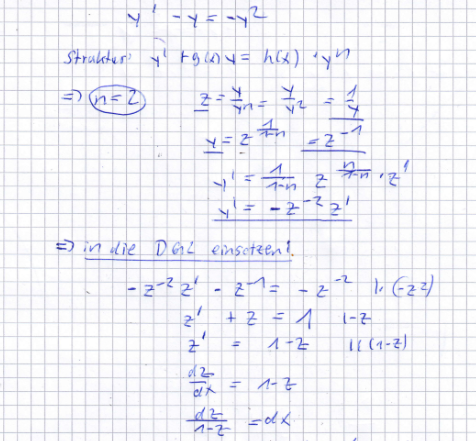 y' - y = -y²
Struktur: y' + g(x) y = h(x) · yⁿ
=> n=2 z = y/yⁿ = y/y² = 1/y
y = z^(1/(1-n)) = z⁻¹
y' = 1/(1-n) z^(n/(1-n)) · z'
y' = -z⁻² z'
=> in die DGL einsetzen!
-z⁻² z' - z⁻¹ = -z⁻² |· (-z²)
z' + z = 1 |-z
z' = 1-z |: (1-z)
dz/dx = 1-z
dz/(1-z) = dx